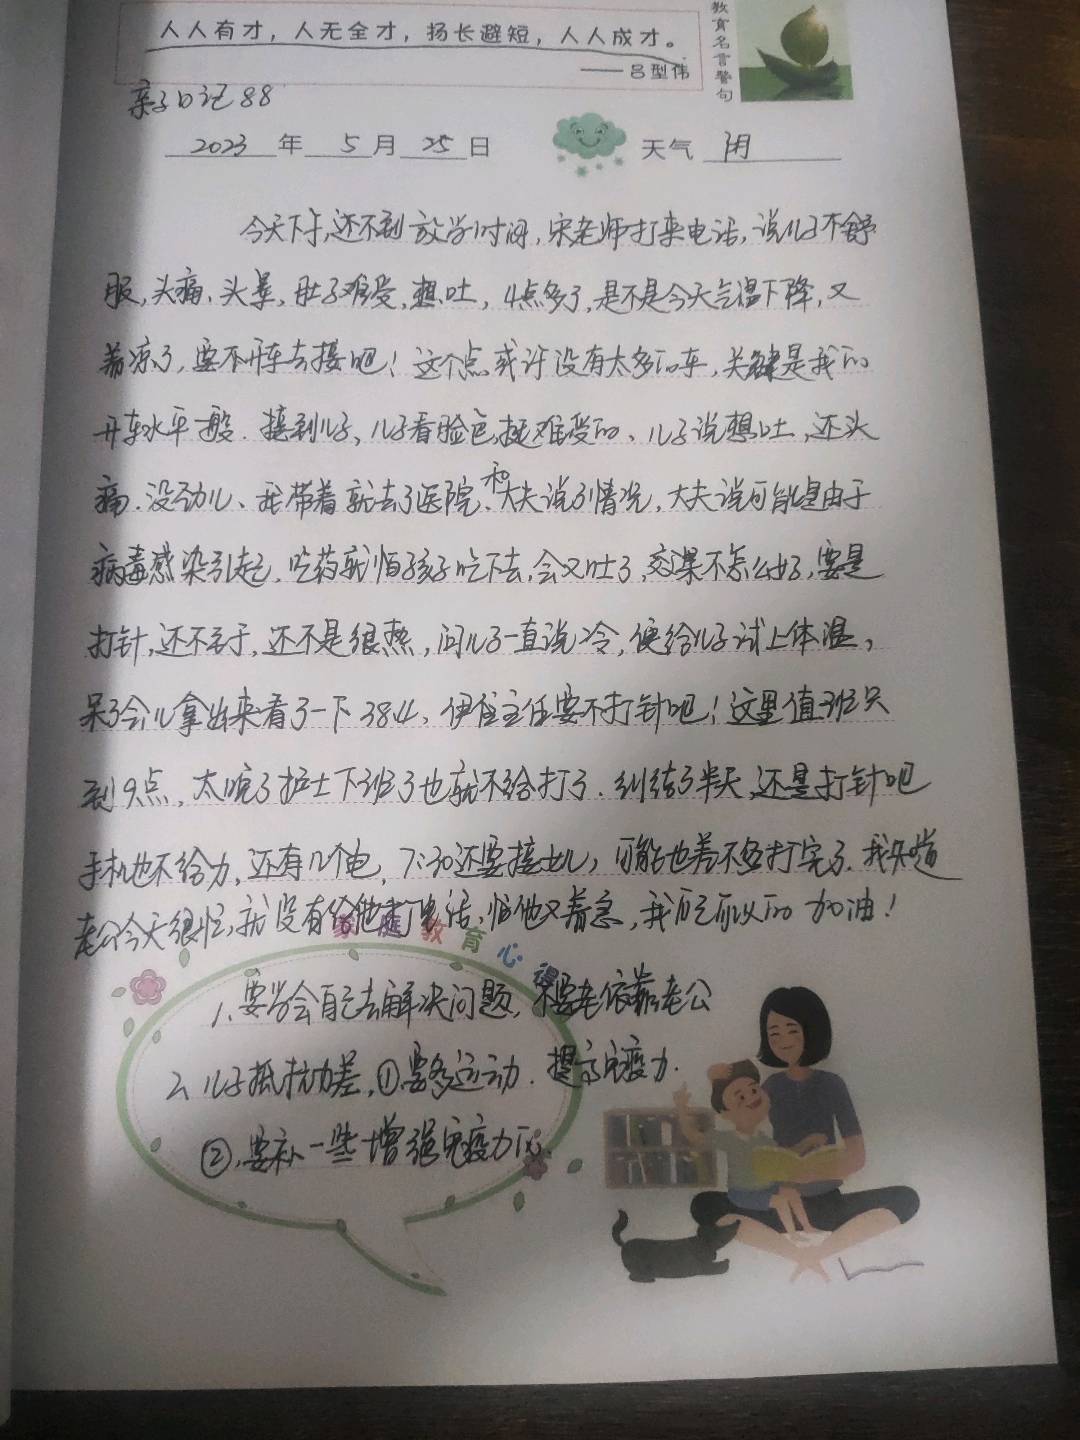 人人有才，人无全才，扬长避短，人人成才。
——吕型伟
教育名言警句
亲子日记88
2023年5月25日 天气 阴
今天下午,还不到放学时间,宋老师打来电话,说儿子不舒
服,头痛、头晕,肚子难受,想吐,4点多了,是不是今天气温下降,又
着凉了,要不开车去接吧!这个点或许没有太多的车,关键是我的
开车水平一般.接到儿子,儿子看脸色挺难受的、儿子说想吐,还头
痛.没劲儿、我带着就去了医院、和大夫说了情况,大夫说可能是由于
病毒感染引起,吃药就怕孩子吃下去,会又吐了,效果不怎么好,要是
打针,还不至于,还不是很热,问儿子一直说冷,便给儿子试上体温,
呆了会儿拿出来看了一下38.4、伊住主任要不打针吧!这里值班只
到9点,太晚了护士下班了也就不给打了.纠结了半天,还是打针吧
手机也不给力,还有几个电,7:30还要接女儿,可能也差不多打完了.我知道
老公今天很忙,就没有给他打电话,怕他又着急,我自己可以的 加油!
家庭教育心得
1、要学会自己去解决问题,不要老依靠老公
2、儿子抵抗力差,①要多运动.提高免疫力.
②、要补一些增强免疫力的.